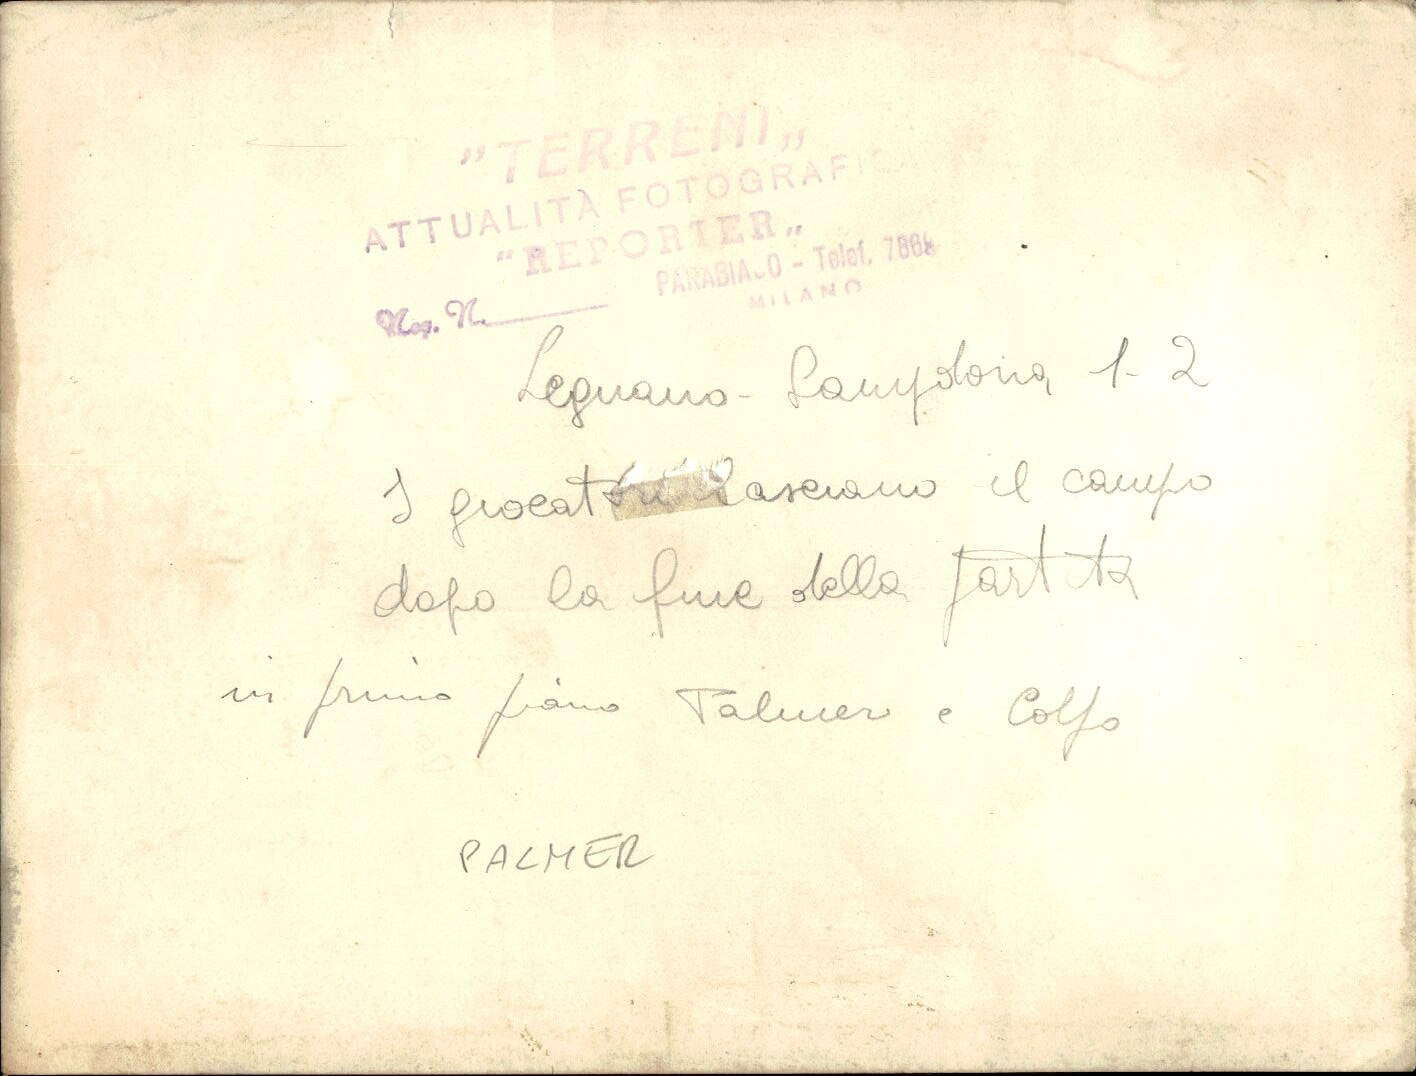 "TERRENI"
ATTUALITÀ FOTOGRAFIC
"REPORTER"
PARABIAGO - Telef. 7868
MILANO
Neg. N.
Legnano - Sampdoria 1-2
I giocatori lasciano il campo
dopo la fine della partita
in primo piano Palmer e Colfo
PALMER